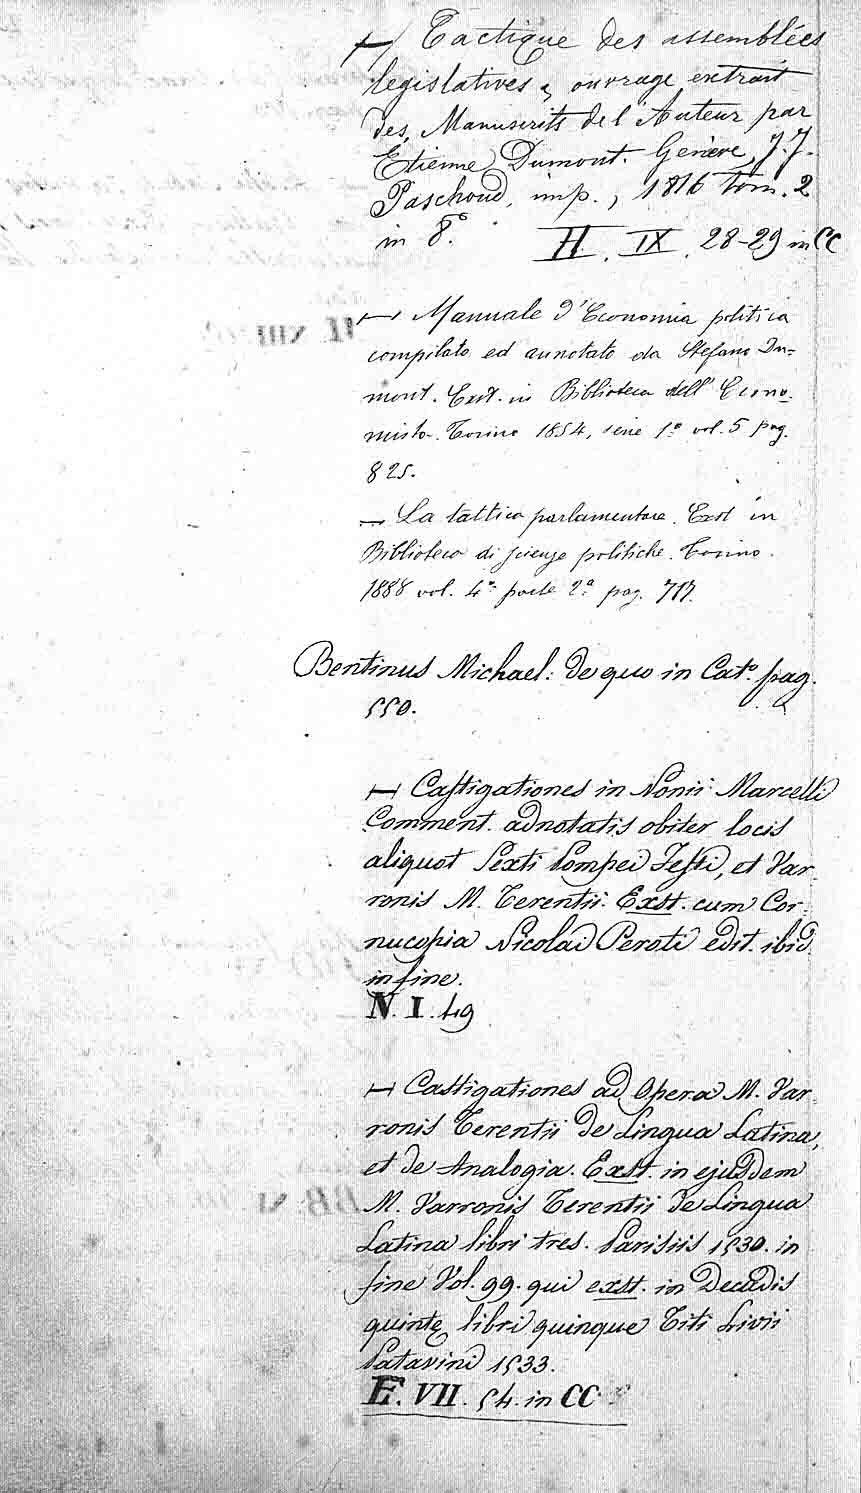 — Tactique des assemblées
legislatives, ouvrage extrait
des Manuscrits de l'Auteur par
Etienne Dumont. Genève, J.J.
Paschoud, imp., 1816 tom. 2
in 8.° H. IX. 28-29 in CC
— Manuale d'Economia politica
compilato ed annotato da Stefano Du=
mont. Exst. in Biblioteca dell' Econo-
mista. Torino 1854, serie 1ª vol. 5 pag.
825.
— La tattica parlamentare. Exst in
Biblioteca di scienze politiche. Torino.
1888 vol. 4° parte 2ª pag. 717.
Bentinus Michael: de quo in Cat.° pag.
550.
— Castigationes in Nonii Marcelli
Comment. adnotatis obiter locis
aliquot Sexti Pompei Festi, et Var-
ronis M. Terentii. Exst. cum Cor-
nucopia Nicolai Peroti edit. ibid.
in fine.
N. I. 49
— Castigationes ad Opera M. Var-
ronis Terentii de Lingua Latina,
et de Analogia. Exst. in ejusdem
M. Varronis Terentii de Lingua
Latina libri tres. Parisiis 1530. in
fine Vol. 99. qui exst. in Decadis
quintę libri quinque Titi Livii
Patavini 1533.
E. VII. 54. in CC